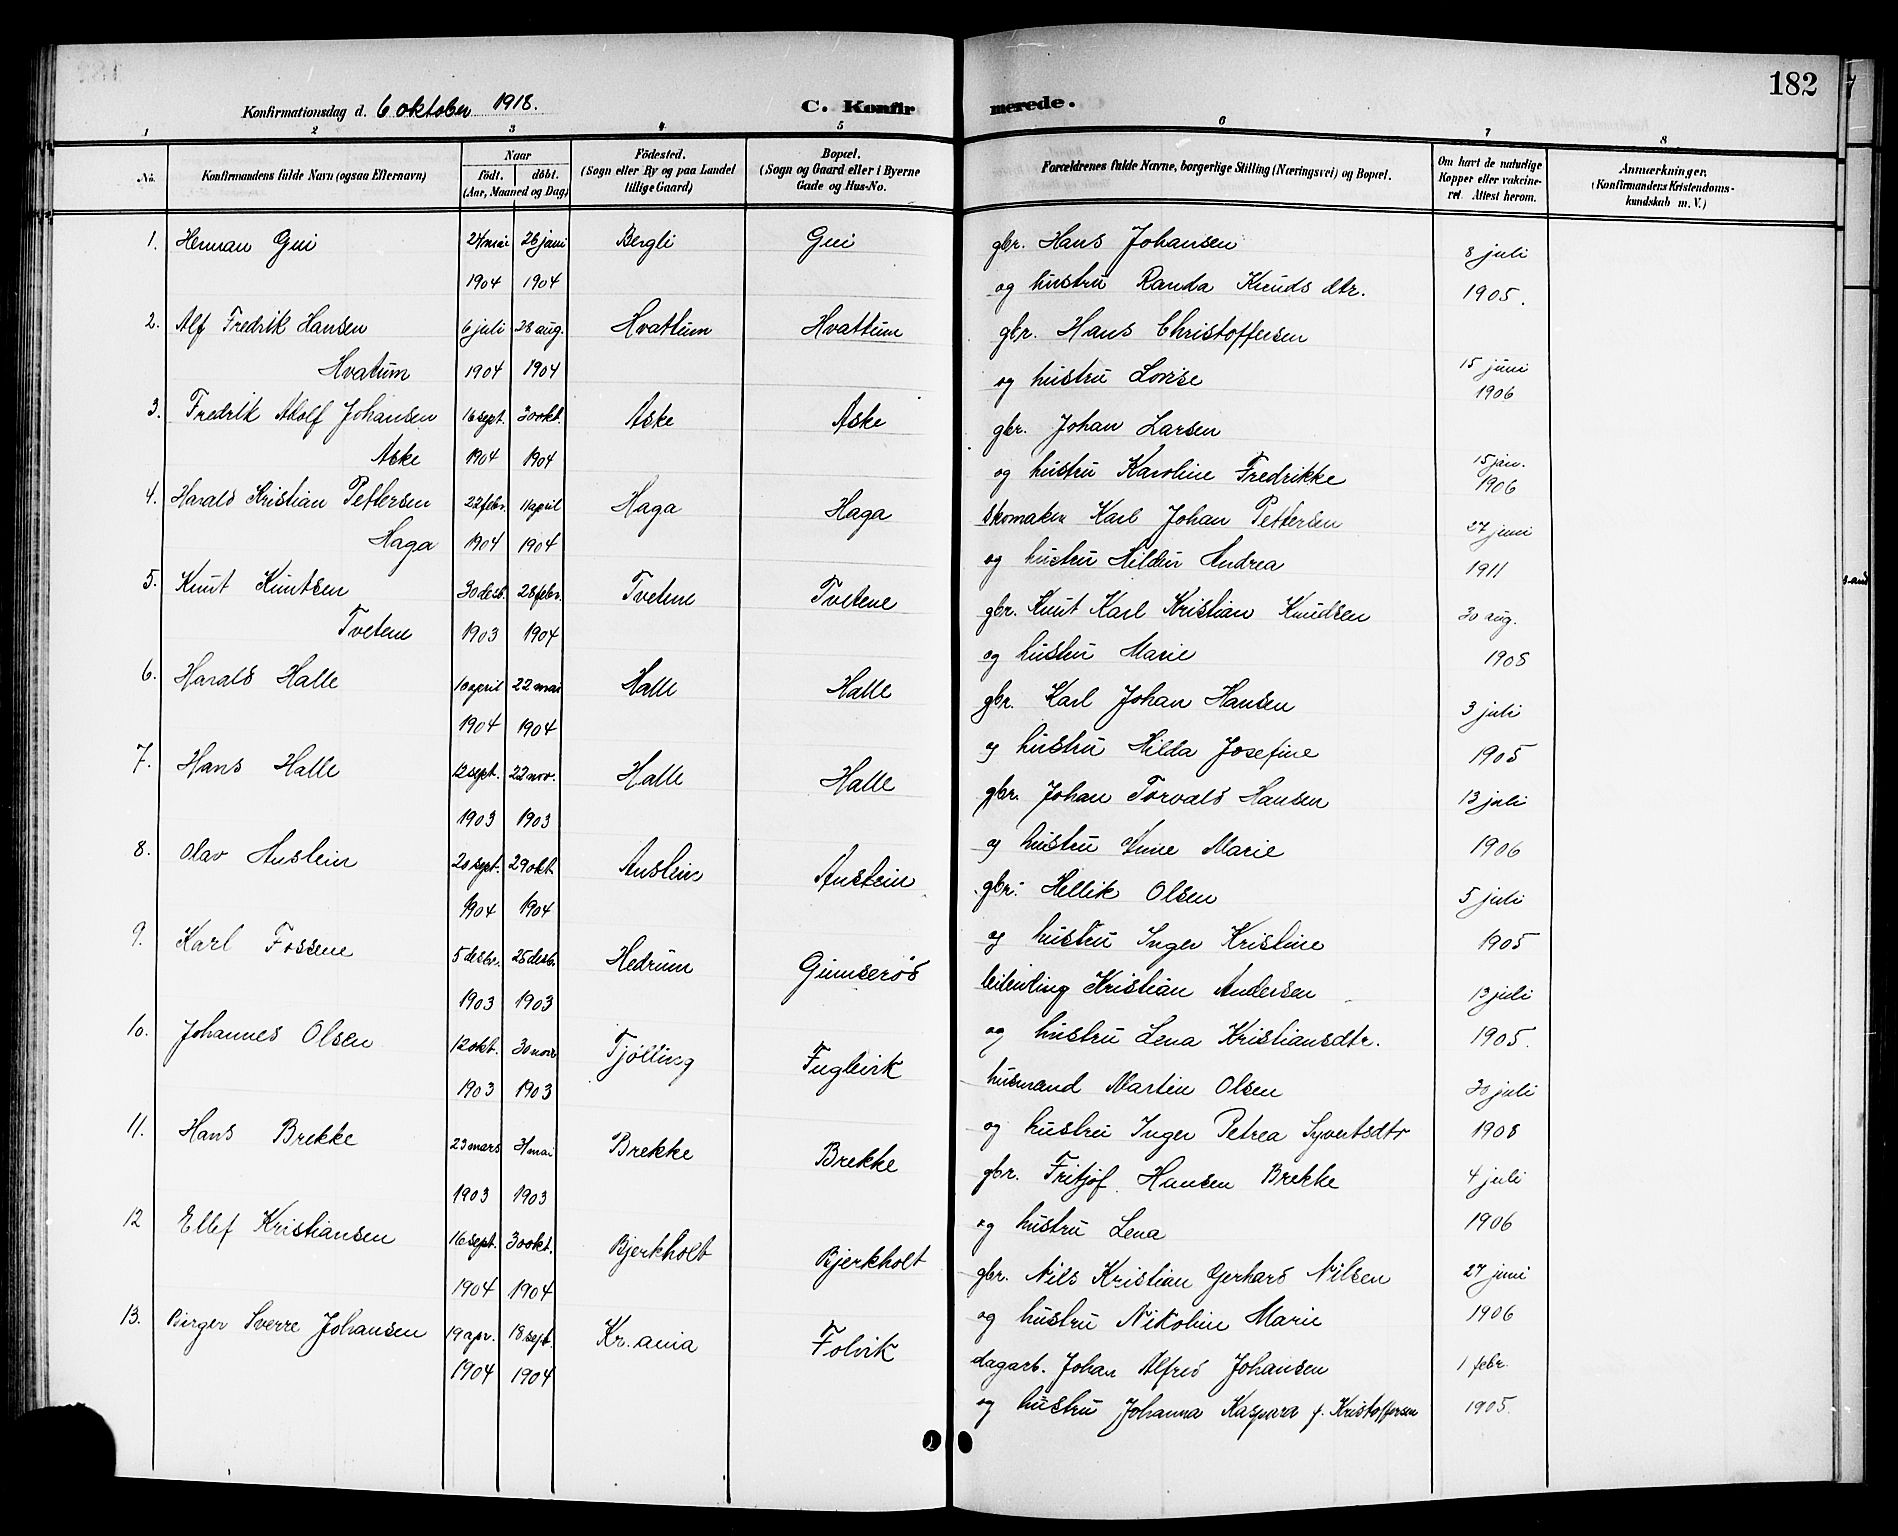 182
Konfirmationsdag d. 6 oktober 1918. C. Konfirmerede.
1 2 3 4 5 6 7 8
No. Konfirmandens fulde Navn (ogsaa Efternavn) Naar Födt. döbt. (Aar, Maaned og Dag) Födested. (Sogn eller By og paa Landet tillige Gaard) Bopæl. (Sogn og Gaard eller i Byerne Gade og Hus-No. Forældrenes fulde Navne, borgerlige Stilling (Næringsvei) og Bopæl. Om havt de naturlige Kopper eller vakcineret. Attest herom. Anmærkninger. (Konfirmandens Kristendomskundskab m. V.)
1. Herman Gui 24 mai 26 juni Bergli Gui gbr. Hans Johansen 8 juli
1904 1904 og hustru Randa Knuds dtr. 1905.
2. Alf Fredrik Hansen 6 juli 28 aug. Hvattum Hvattum gbr. Hans Christoffersen
Hvatum 1904 1904 og hustru Lovise 15 juni 1906
3. Fredrik Adolf Johansen 16 sept. 30 okt. Aske Aske gbr. Johan Larsen
Aske 1904 1904 og hustru Karoline Fredrikke 15 jan. 1906
4. Harald Kristian Pettersen 22 febr. 11 april Haga Haga skomaker Karl Johan Pettersen 27 juni
Haga 1904 1904 og hustru Hildur Andrea 1911
5. Knut Knutsen 30 desb. 28 febr. Tvetene Tvetene gbr. Knut Karl Kristian Knudsen 30 aug.
Tvetene 1903 1904 og hustru Marie 1905
6. Harald Halle 10 april 22 mai Halle Halle gbr. Karl Johan Hansen 3 juli
1904 1904 og hustru Hilda Josefine 1905
7. Hans Halle 12 sept. 22 nov. Halle Halle gbr. Johan Torvald Hansen 13 juli
1903 1903 og hustru Anne Marie 1906
8. Olav Austein 20 sept. 29 okt Austein Austein gbr. Hellik Olsen 5 juli
1904 1904 og hustru Inger Kristine 1905
9. Karl Fossene 5 desbr. 25 desbr. Hedrum Gumserød leilending Kristian Andersen 13 juli
1903 1903 og hustru Lena Kristiansdtr. 1905.
10. Johannes Olsen 12 okt. 30 novr Tjölling Fuglevik husmand Martin Olsen 20 juli
1903 1903 og hustru Inger Petrea Syvertsdtr 1908
11. Hans Brekke 23 mars mai Brekke Brekke gbr. Fritjof Hansen Brekke 4 juli
1903 1903 og hustru Lena 1906
12 Ellef Kristiansen 16 sept. 30 okt. Bjerkholt Bjerkholt gbr. Nils Kristian Gerhard Nilsen 27 juni
1904 1904 og hustru Nikoline Marie 1906
13. Birger Sverre Johansen 19 apr. 18 sept. Kr.ania Folvik dagarb. Johan Alfred Johansen 1 febr.
1904 1904 og hustru Johanna Kaspara f. Kristoffersen 1905.